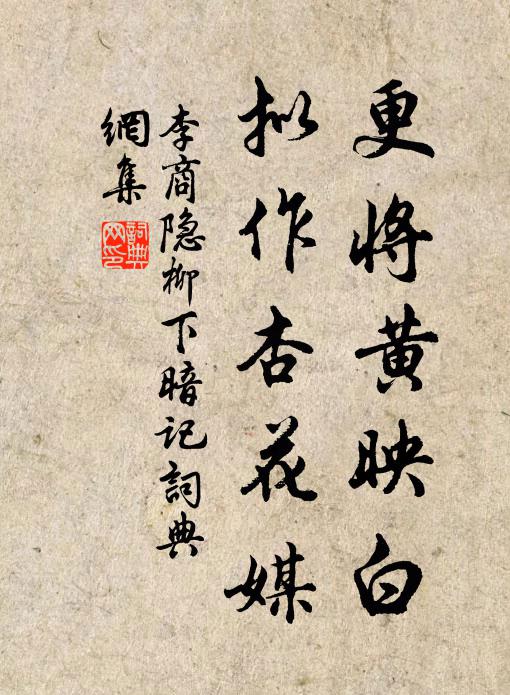 更将黄映白
拟作杏花媒
李商隐柳下暗记词典
網集
詞典
网印